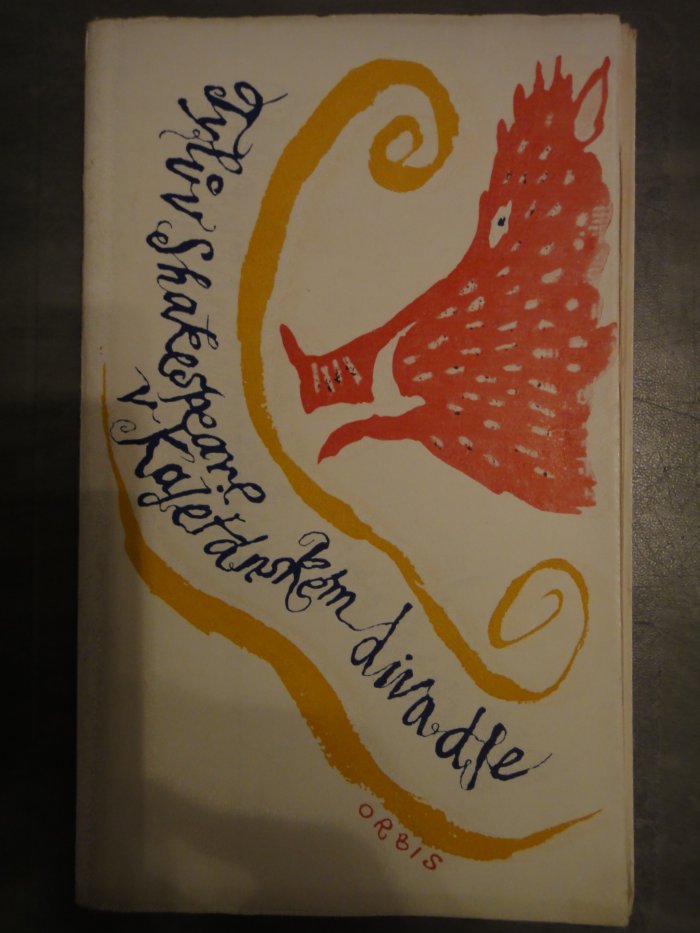 Tylův Shakespeare
v Kajetánském divadle
ORBIS